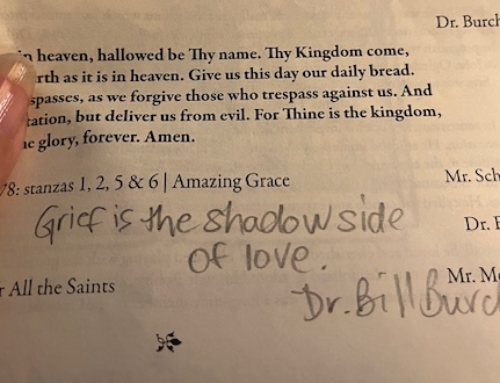 Dr. Burch
in heaven, hallowed be Thy name. Thy Kingdom come,
rth as it is in heaven. Give us this day our daily bread.
spasses, as we forgive those who trespass against us. And
tation, but deliver us from evil. For Thine is the kingdom,
glory, forever. Amen.
78: stanzas 1, 2, 5 & 6 | Amazing Grace Mr. Sch
Grief is the shadow side
of love. Dr.
All the Saints Mr. M
Dr. Bill Burch